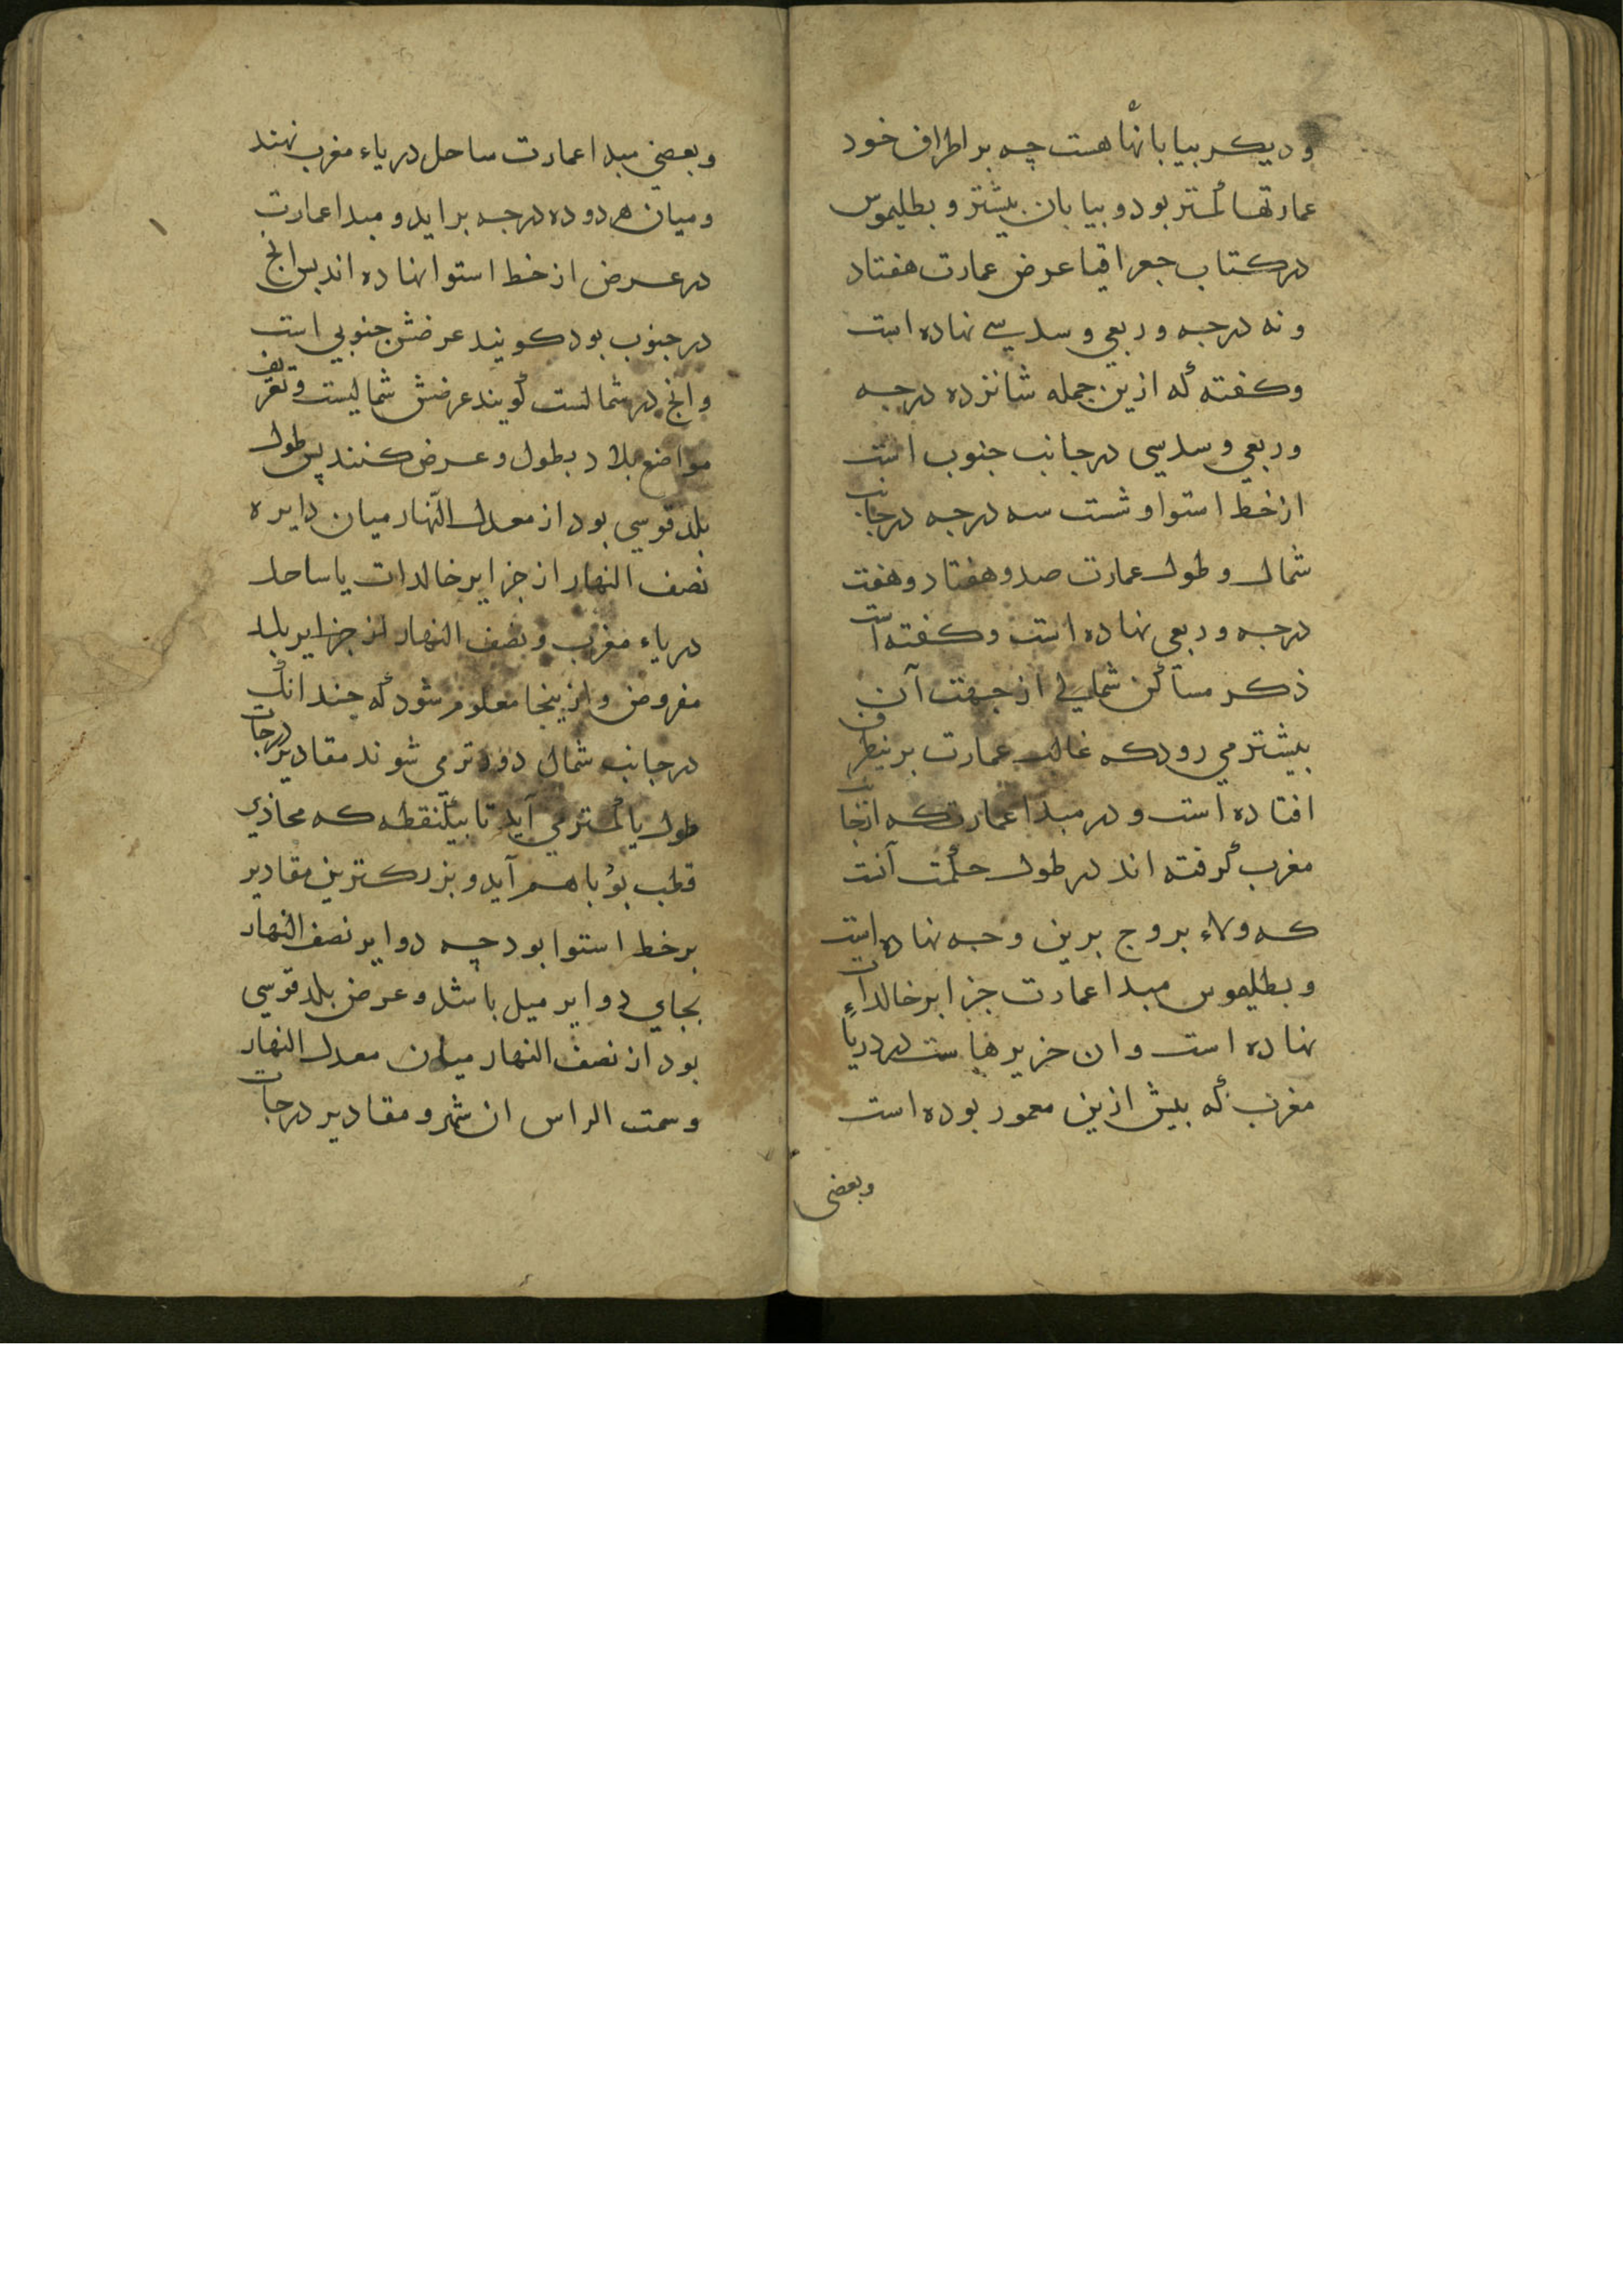 و دیکر بیابانها هست چه بر اطراف خود
عمارتها کمتر بود و بیابان بیشتر و بطلیموس
در کتاب جعرافیا عرض عمارت هفتاد
و نه درجه و ربعی و سدسی نهاده است
و کفته که ازین جمله شانزده درجه
و ربعی و سدسی در جانب جنوب است
از خط استوا و شست سه درجه در جانب
شمال و طول عمارت صد و هفتاد و هفت
درجه و ربعی نهاده است و کفته است
ذکر مساکن شمالی از جهت آن
بیشتر می رود که غالب عمارت برینطرف
افتاده است و در مبدا عمارت که از جانب
مغرب کرفته اند در طول حکمت آنست
که ولاء بروج برین وجه نهاده است
و بطلیموس مبدا عمارت جزایر خالدات
نهاده است و ان جزیرهاست در دریاء
مغرب که بیش ازین معمور بوده است
وبعضی
و بعضی مبدا عمارت ساحل دریاء مغرب نهند
و میان هر دو ده درجه براید و مبدا عمارت
در عرض از خط استوا نهاده اند بس انچ
در جنوب بود کویند عرضش جنوبی است
و انچ در شمالست کویند عرضش شمالیست و تعریف
مواضع بلاد بطول و عرض کنند پس طول
بلد قوسی بود از معدل النّهار میان دایره
نصف النهار از جزایر خالدات یا ساحل
دریاء مغرب و نصف النهار از جزایر بلد
مفروض و از ینجا معلوم شود که چندانک
در جانب شمال دورتر می شوند مقادیر درجات
طول یا کمتر می آید تا بیک نقطه که محاذی
قطب بود با هم آید و بزرکترین مقادیر
بر خط استوا بود چه دوایر نصف النهار
بجای دوایر میل باشد و عرض بلد قوسی
بود از نصف النهار میان معدل النهار
و سمت الراس ان شهر و مقادیر درجات